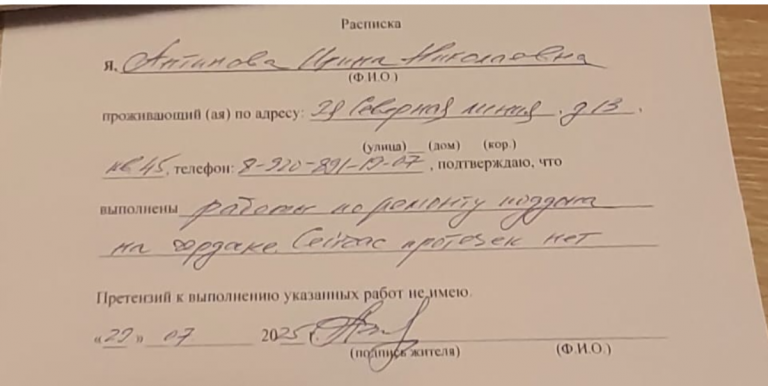 Расписка
Я, Антипова Ирина Николаевна
(Ф.И.О.)
проживающий (ая) по адресу: 2я Северная линия, д 13,
(улица) (дом) (кор.)
кв 45, телефон: 8-920-891-19-07, подтверждаю, что
выполнены работы по ремонту поддона
на чердаке. Сейчас протечек нет
Претензий к выполнению указанных работ не имею
«29» 07 2025 г.
(подпись жителя) (Ф.И.О.)